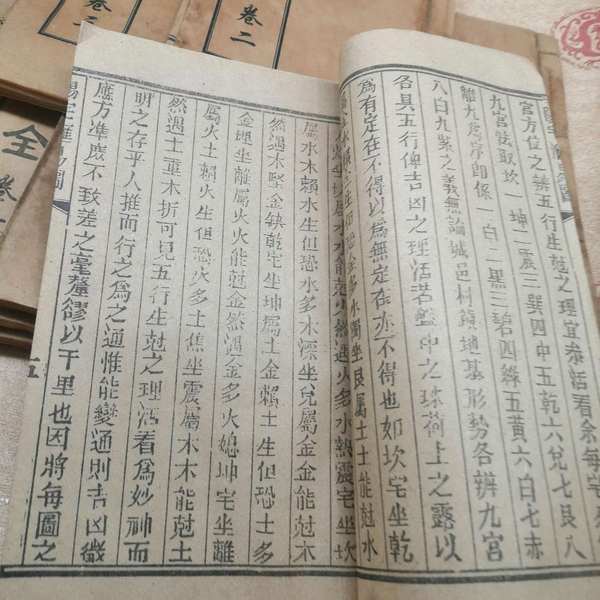 宮方位之辨五行生尅之理宜叅活看余每宅
九宮法取坎一坤二震三巽四中五乾六兌七艮八
離九為序即係一白二黑三碧四綠五黃六白七赤
八白九紫之義無論城邑村鎮地基形勢各辨九宮
各具五行俾吉凶之理活若盤中之珠荷上之露以
為有定在不得以為無定在亦不得也如坎宅坐乾
多水濁坐艮屬土土能尅水
坐坎屬水水能尅火遇火多水熱震宅坐坎
屬水木賴水生但恐水多木漂坐兌屬金金能尅木
然遇木堅金缺乾宅坐坤屬土金賴土生但恐土多
金埋坐離屬火火能尅金然遇金多火熄坤宅坐離
屬火土賴火生但恐火多土焦坐震屬木木能尅土
然遇土重木折可見五行生尅之理活看為妙神而
明之存乎人推而行之為之通惟能變通則吉凶微
應方準庶不致差之毫釐謬以千里也因將每圖之
五
卷二
全